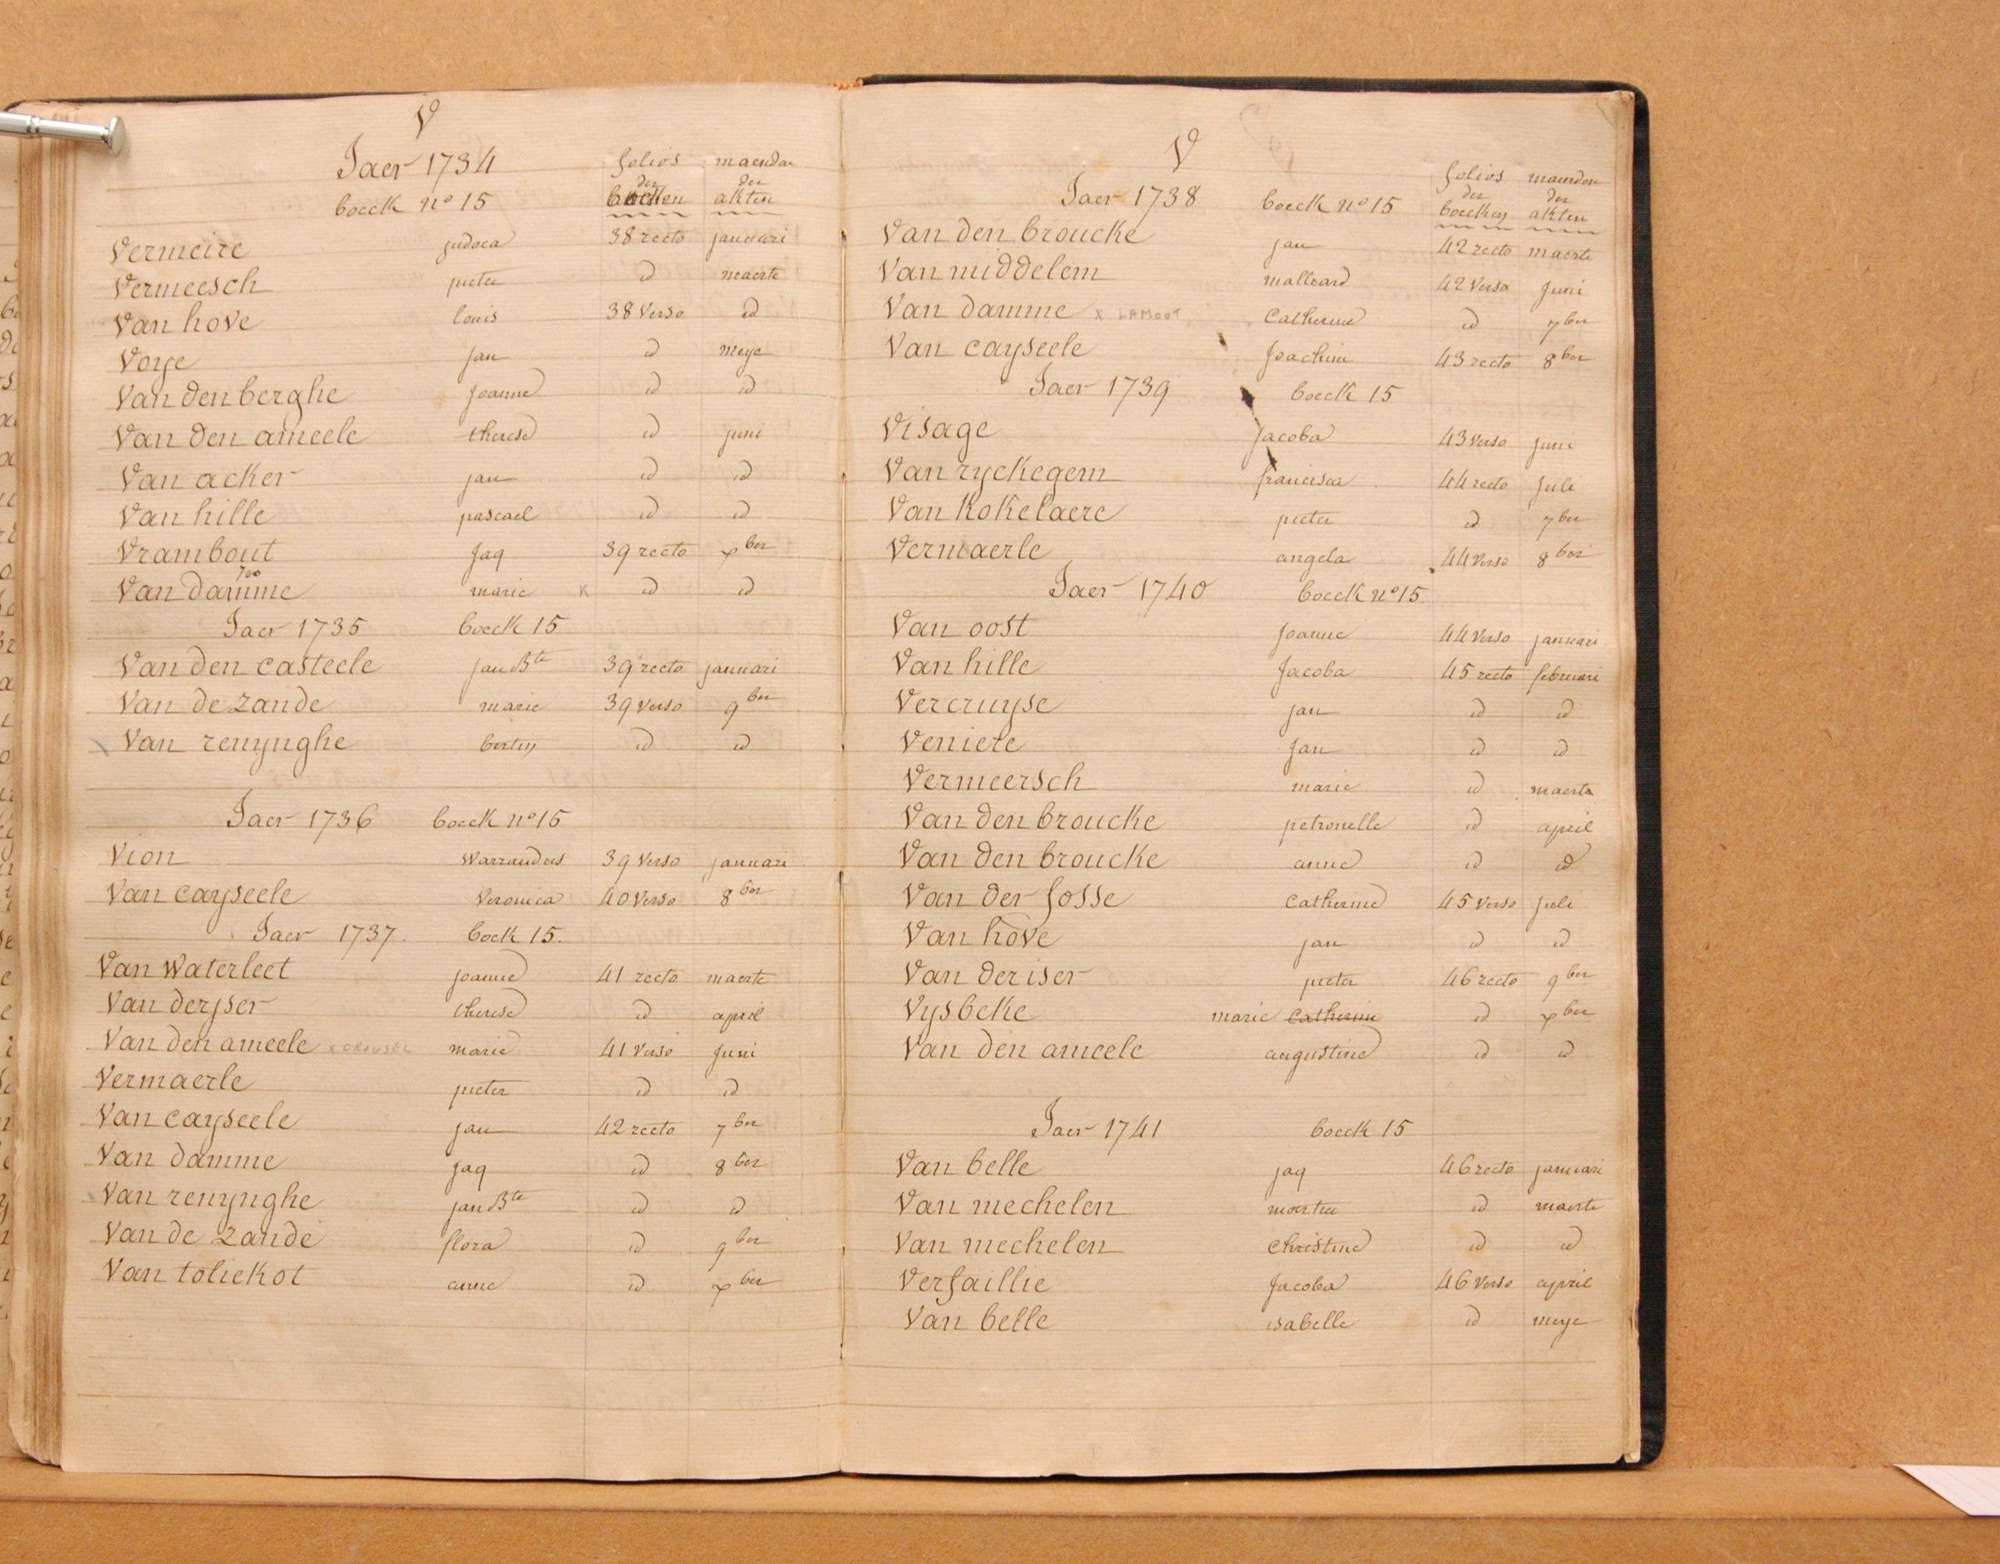 V
Jaer 1734 folios maenden
der der
boeck nº 15 boecken akten
Vermeire judoca 38 recto januari
Vermeesch pieter id maerte
Van hove louis 38 verso id
Voye jan id meye
Van den berghe Joanne id id
Van den ameele therese id juni
Van acker jan id id
Van hille pascael id id
Vrambout Jaq 39 recto xber
Van damme marie K id id
Jaer 1735 boeck 15
Van den casteele jan Bte 39 recto januari
Van de zande marie 39 verso 9ber
Van renynghe bertin id id
Jaer 1736 boeck nº 15
Vion 39 verso januari
Van cayseele veronica 40 verso 8ber
Jaer 1737. boek 15.
Van Waterleet joanne 41 recto maerte
Van deryser therese id april
Van den ameele marie 41 verso Juni
Vermaerle pieter id id
Van cayseele jan 42 recto 7ber
Van damme jaq id 8ber
Van renynghe jan Bte id id
Van de zande flora id 9ber
Van toliekot anne id xber
V
folios maenden
Jaer 1738 boeck nº 15 der der
boecken akten
Van den broucke jan 42 recto maerte
Van middelem 42 verso Juni
Van damme x LAMOOT Catherine id 7ber
Van cayseele Joachim 43 recto 8ber
Jaer 1739 boeck 15
Visage Jacoba 43 verso juni
Van ryckegem francisca 44 recto Juli
Van Kokelaere pieter id 7ber
Vermaerle angela 44 verso 8ber
Jaer 1740 boeck nº 15.
Van oost Joanne 44 verso januari
Van hille Jacoba 45 recto februari
Vercruyse jan id id
Veniere Jan id id
Vermeersch marie id maerte
Van den broucke petronelle id april
Van den broucke anne id id
Van der fosse Catherine 45 verso juli
Van hove jan id id
Van deriser pieter 46 recto 9ber
Vysbeke marie catherine id xber
Van den ameele augustine id id
Jaer 1741 boeck 15
Van belle jaq 46 recto januari
Van mechelen id maerte
Van mechelen christine id id
Verfaillie Jacoba 46 verso april
Van belle isabelle id meye